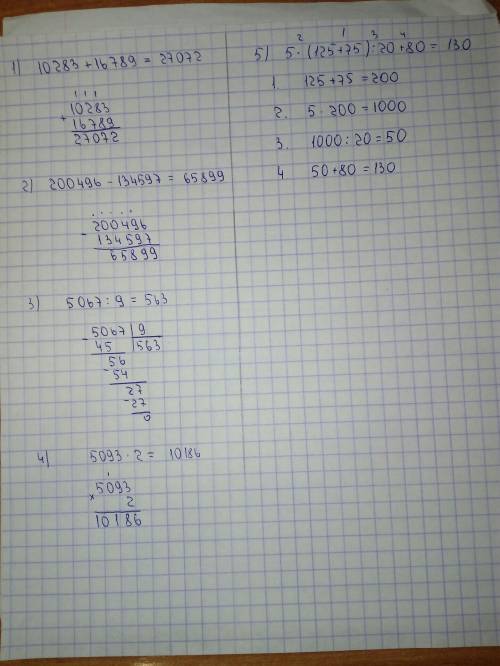 1) 10283 + 16789 = 27072
1 1 1
10283
+
16789
27072
2) 200496 - 134597 = 65899
. . . . .
- 200496
134597
65899
3) 5067 : 9 = 563
- 5067 | 9
45 | 563
56
- 54
27
- 27
0
4) 5093 · 2 = 10186
1
5093
×
2
10186
2 1 3 4
5) 5 · (125 + 75) : 20 + 80 = 130
1. 125 + 75 = 200
2. 5 · 200 = 1000
3. 1000 : 20 = 50
4 50 + 80 = 130